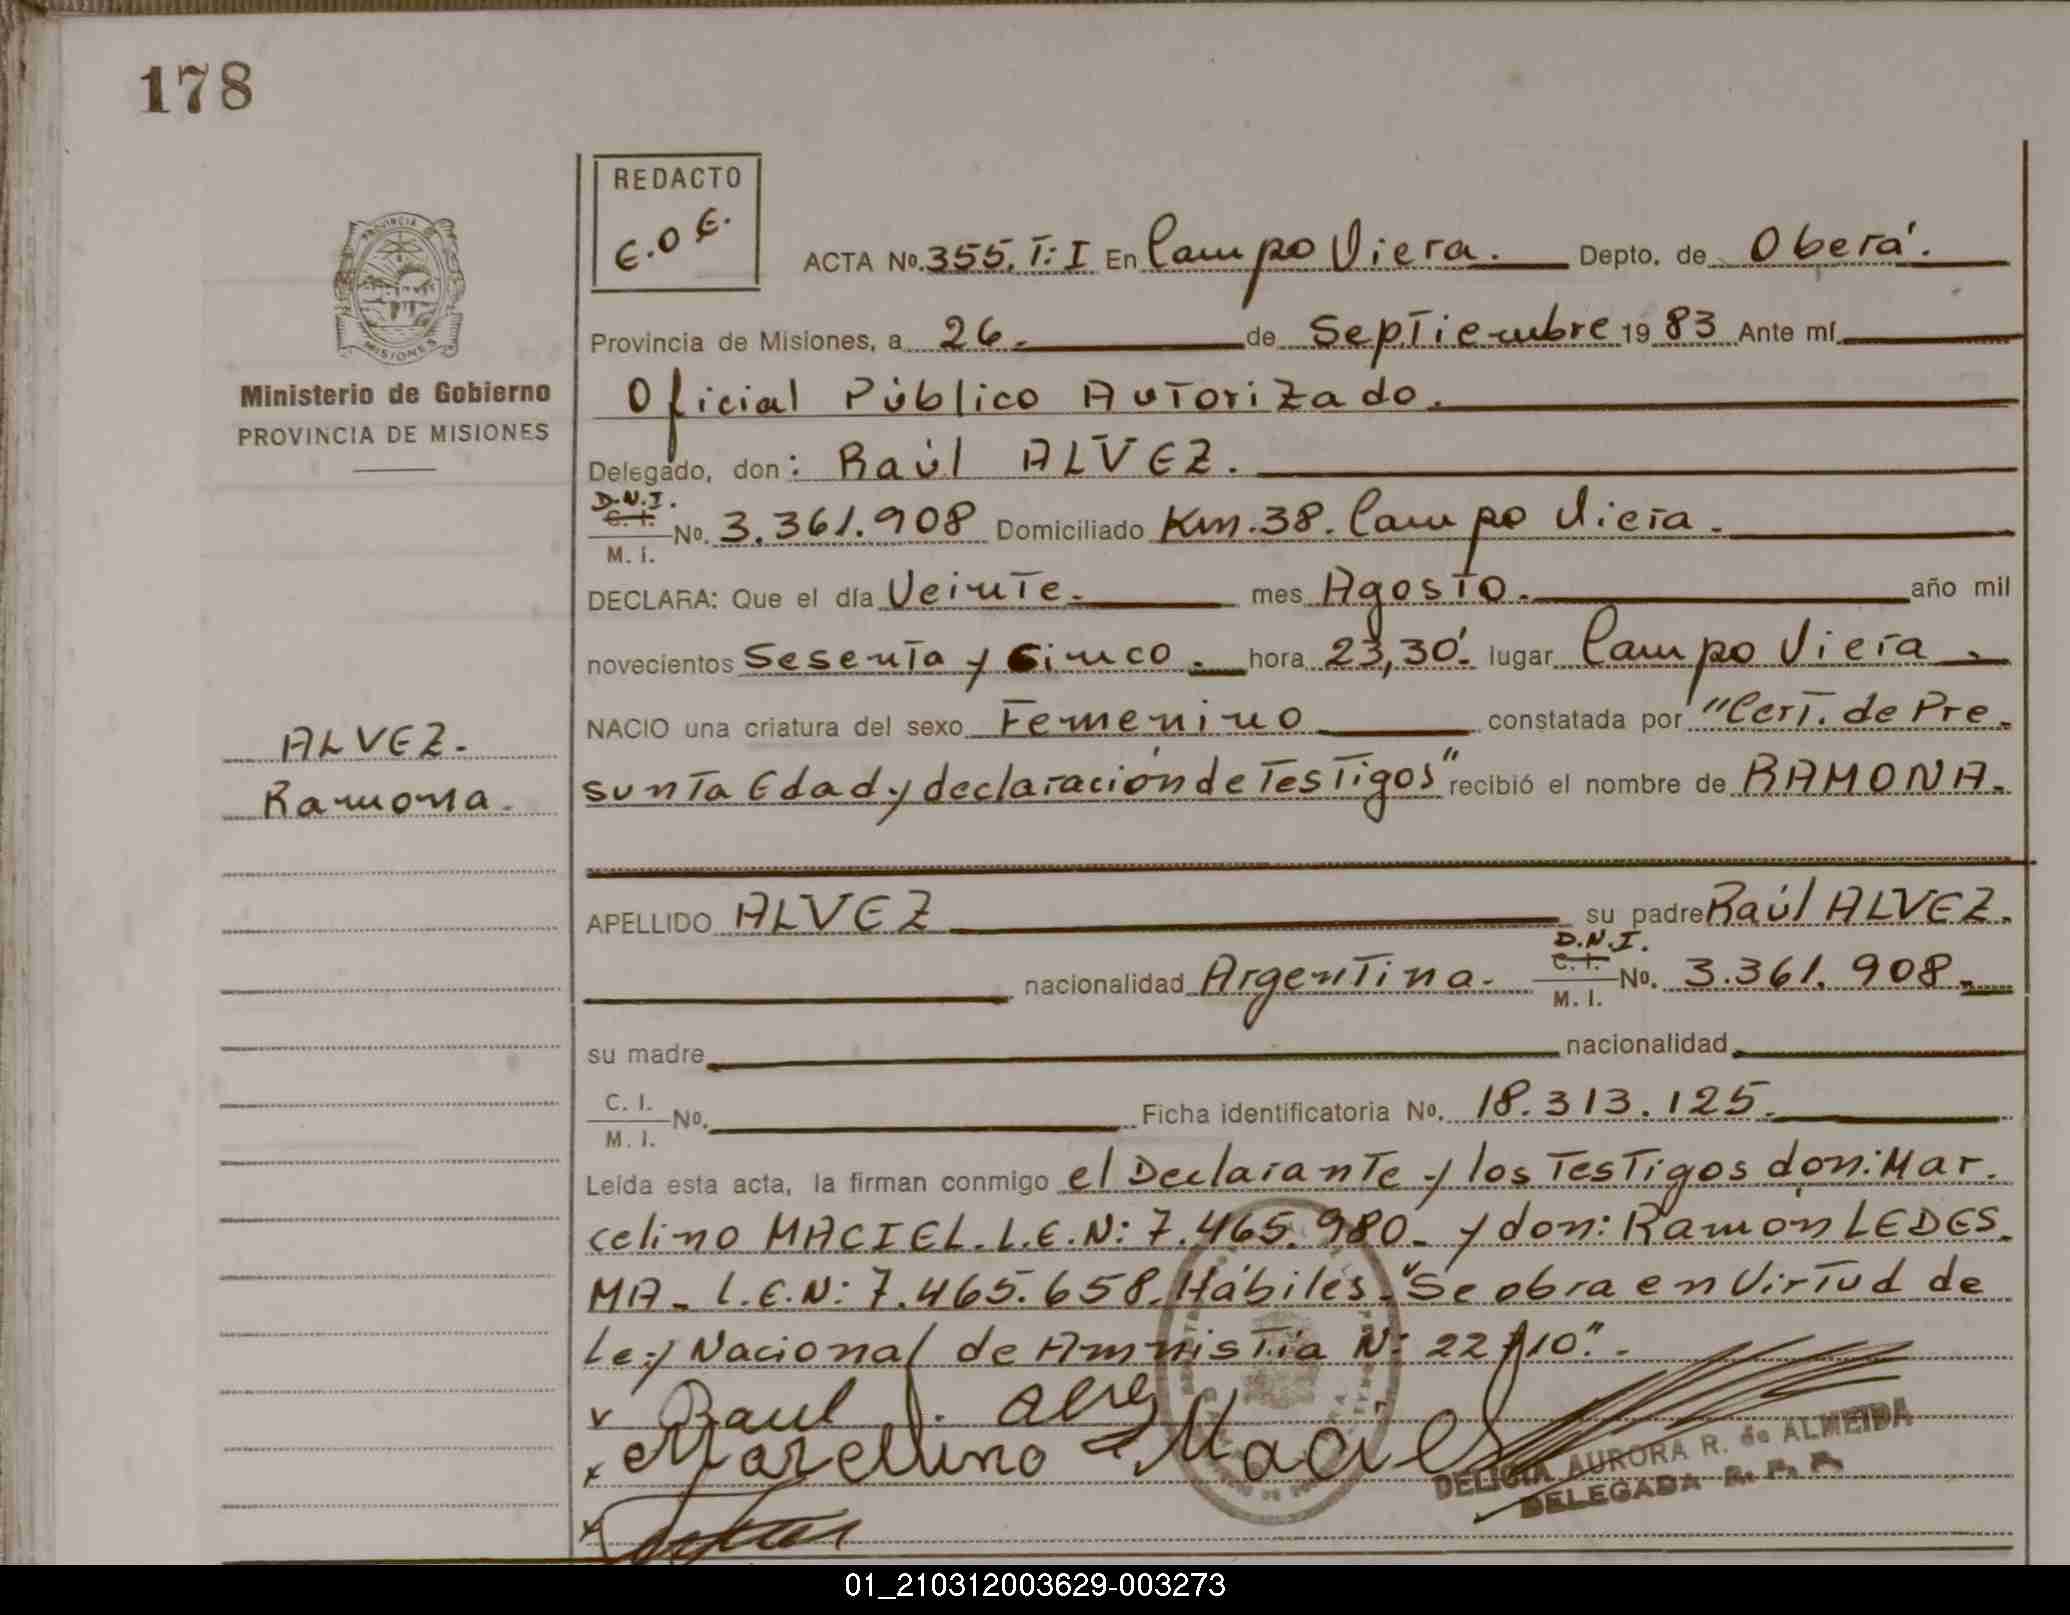 178
REDACTO
E.O.E.
PROVINCIA
MISIONES
Ministerio de Gobierno
PROVINCIA DE MISIONES
ACTA No. 355. T: I En Campo Viera. Depto. de Oberá.
Provincia de Misiones, a 26. de Septiembre 19 83 Ante mí
Oficial Público Autorizado.
Delegado, don: Raúl ALVEZ.
D.N.I.
C. I.
M. I.
No. 3.361.908 Domiciliado Km. 38. Campo Viera.
DECLARA: Que el día Veinte. mes Agosto. año mil
novecientos Sesenta y Cinco. hora 23,30'. lugar Campo Viera.
NACIO una criatura del sexo Femenino constatada por "Cert. de Pre-
sunta Edad y declaración de Testigos" recibió el nombre de RAMONA.
ALVEZ.
Ramona.
APELLIDO ALVEZ su padre Raúl ALVEZ.
nacionalidad Argentina. D.N.I. C. I. M. I. No. 3.361.908.
su madre nacionalidad
C. I. M. I. No. Ficha identificatoria No. 18.313.125.
Leída esta acta, la firman conmigo el Declarante y los Testigos don: Mar-
celino MACIEL. L.E.N: 7.465.980. y don: Ramón LEDES-
MA. L.E.N: 7.465.658. Hábiles. "Se obra en Virtud de
Ley Nacional de Amnistía N: 22710".
Raul Alvez
Marcelino Maciel
DELICIA AURORA R. de ALMEIDA
DELEGADA R. P. P.
01_210312003629-003273